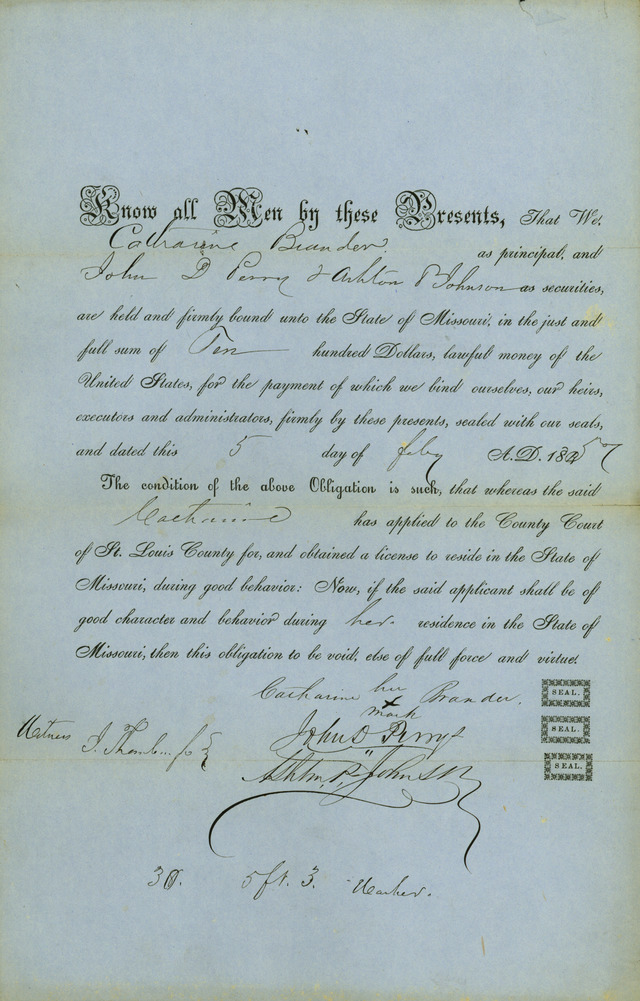 Know all Men by these Presents, That We,
Catharine Brander as principal, and
John D Perry & Ashton P Johnson as securities,
are held and firmly bound unto the State of Missouri, in the just and
full sum of Ten hundred Dollars, lawful money of the
United States, for the payment of which we bind ourselves, our heirs,
executors and administrators, firmly by these presents, sealed with our seals,
and dated this 5 day of feby A.D. 1857
The condition of the above Obligation is such, that whereas the said
Catharine has applied to the County Court
of St. Louis County for, and obtained a license to reside in the State of
Missouri, during good behavior: Now, if the said applicant shall be of
good character and behavior during her residence in the State of
Missouri, then this obligation to be void, else of full force and virtue.
Catharine her Brander. SEAL.
mark
John D Perry SEAL.
Witness
Ashton P. Johnson SEAL.
5 ft. 3. Washer.